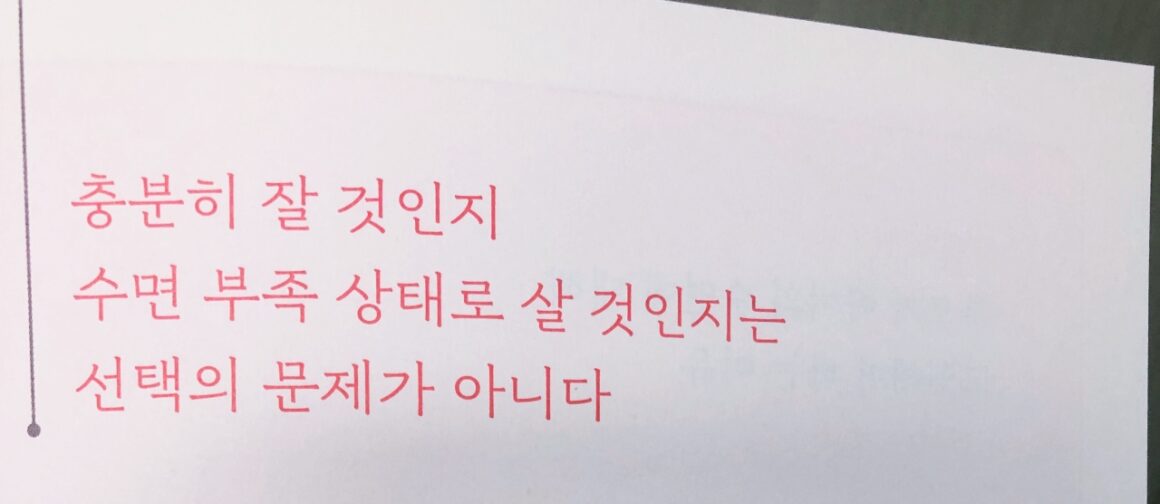 충분히 잘 것인지
수면 부족 상태로 살 것인지는
선택의 문제가 아니다